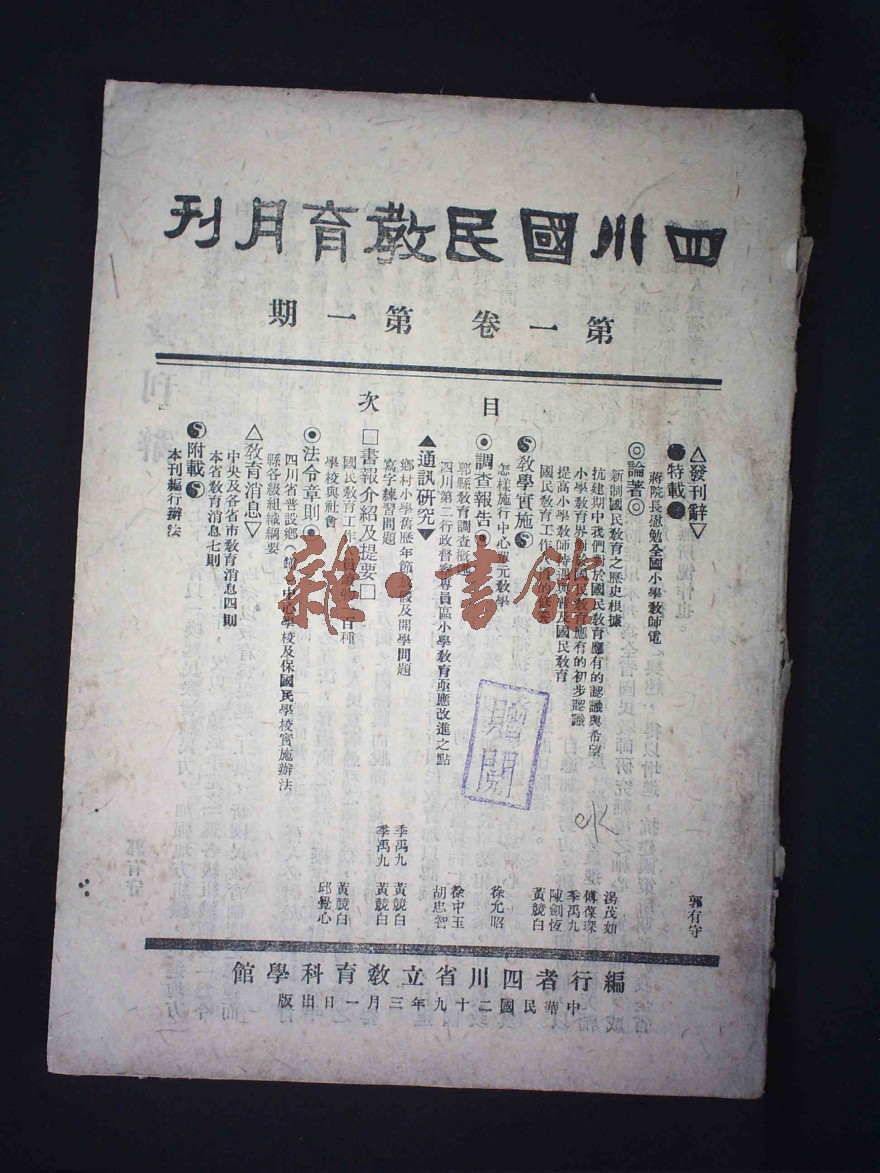 四川國民教育月刊
第一卷 第一期
目次
△發刊辭▽
郭有守
特載
蔣院長慰勉全國小學教師電
◎論著◎
新制國民教育之歷史根據
湯茂如
抗建期中我們對於國民教育應有的認識與希望
傅葆琛
小學教育界對於國民教育應有的初步認識
季禹九
提高小學教師待遇與普及國民教育
陳劍恆
國民教育工作人員的修養
黃競白
教學實施
怎樣施行中心單元教學
徐允昭
調查報告
郫縣教育調查概
徐中玉
四川第二行政督察專員區小學教育亟應改進之點
胡忠智
▲通訊研究▼
鄉村小學舊歷年節放假及開學問題
季禹九 黃競白
寫字練習問題
季禹九 黃競白
□書報介紹及提要□
國民教育工作人員 百種
黃競白
學校與社會
邱覺心
法令章則
四川省普設鄉(鎮)中心學校及保國民學校實施辦法
縣各級組織綱要
△教育消息▽
中央及各省市教育消息四則
本省教育消息七則
附載
本刊編行辦法
編行者四川省立教育科學館
中華民國二十九年三月一日出版
雜·書館